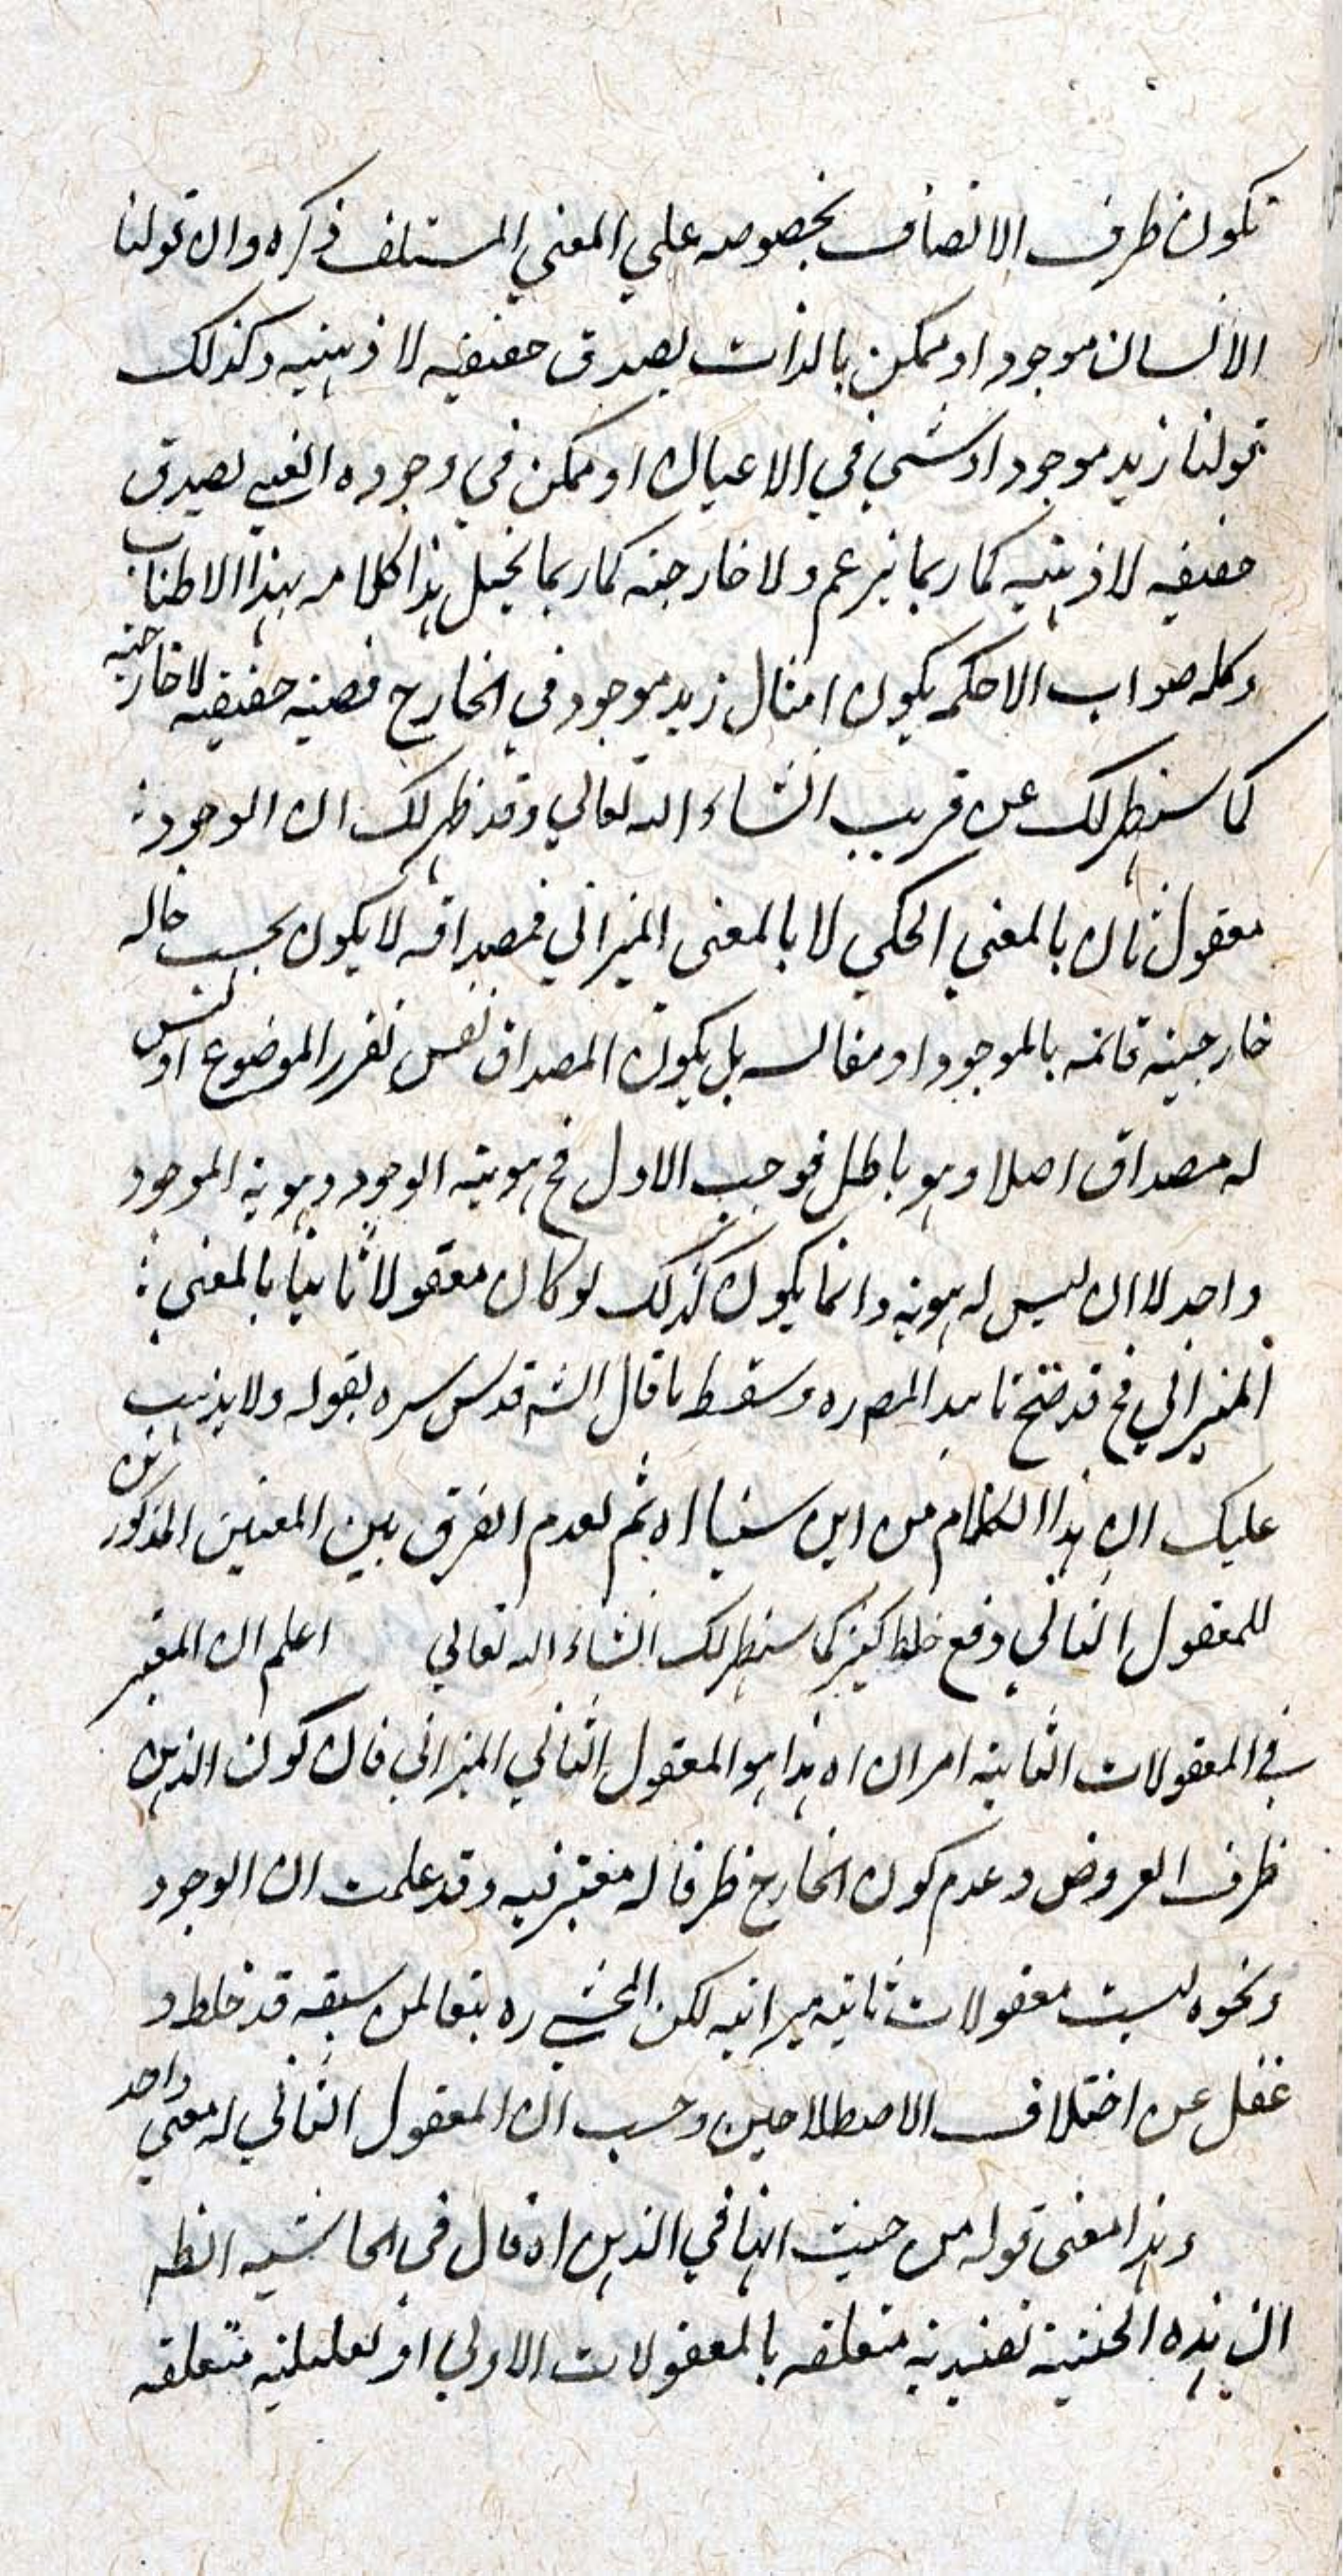 تكون ظرف الاتصاف بخصوصه علي المعني المستلف ذكره وان قولنا
الانسان موجود او ممكن بالذات يصدق حقيقيه لا ذهنيه وكذلك
قولنا زيد موجود او شي في الاعيان او ممكن في وجوده العيني يصدق
حقيقيه لا ذهنيه كما ربما يزعم ولا خارجيه كما ربما يخيل هذا كلامه بهذا الاطناب
وكله صواب الا حكمه بكون امثال زيد موجود في الخارج قضيه حقيقيه لا خارجيه
كما سيظهر لك عن قريب انشاء الله تعالي وقد ظهر لك ان الوجود
معقول ثان بالمعني الحكمي لا بالمعنى الميزاني فمصداقه لا يكون بحسب حاله
خارجيه قائمه بالموجود او مقالسه بل يكون المصداق نفس تقرر الموضوع او ليس
له مصداق اصلا وهو باطل فوجب الاول فح هويته الوجود وهويه الموجود
واحد لا ان ليس له هويه وانما يكون كذلك لو كان معقولا ثانيا بالمعني
الميزاني فح قد صح ما المصره وسقط ما قال الشه قدس سره بقوله ولا يذهب
عليك ان هذا الكلام من ابن سينا اه ثم لعدم الفرق بين المعنين المذكورين
للمعقول الثاني وقع خلط كثير كما سيظهر لك انشاء الله تعالي اعلم ان المعتبر
في المعقولات الثانيه امران اه هذا هو المعقول الثاني الميزاني فان كون الذهن
ظرف العروض وعدم كون الخارج ظرفا له معتبر فيه وقد علمت ان الوجود
ونحوه ليست معقولات ثانيه ميزانيه لكن المحشي ره تبعا لمن سبقه قد خلط و
غفل عن اختلاف الاصطلاحين وحسب ان المعقول الثاني له معني واحد
وهذا معنى قوله من حيث انها في الذهن اه قال في الحاشيه الظه
ان هذه الحيثيه تقييديه متعلقه بالمعقولات الاولي او تعليليه متعلقه